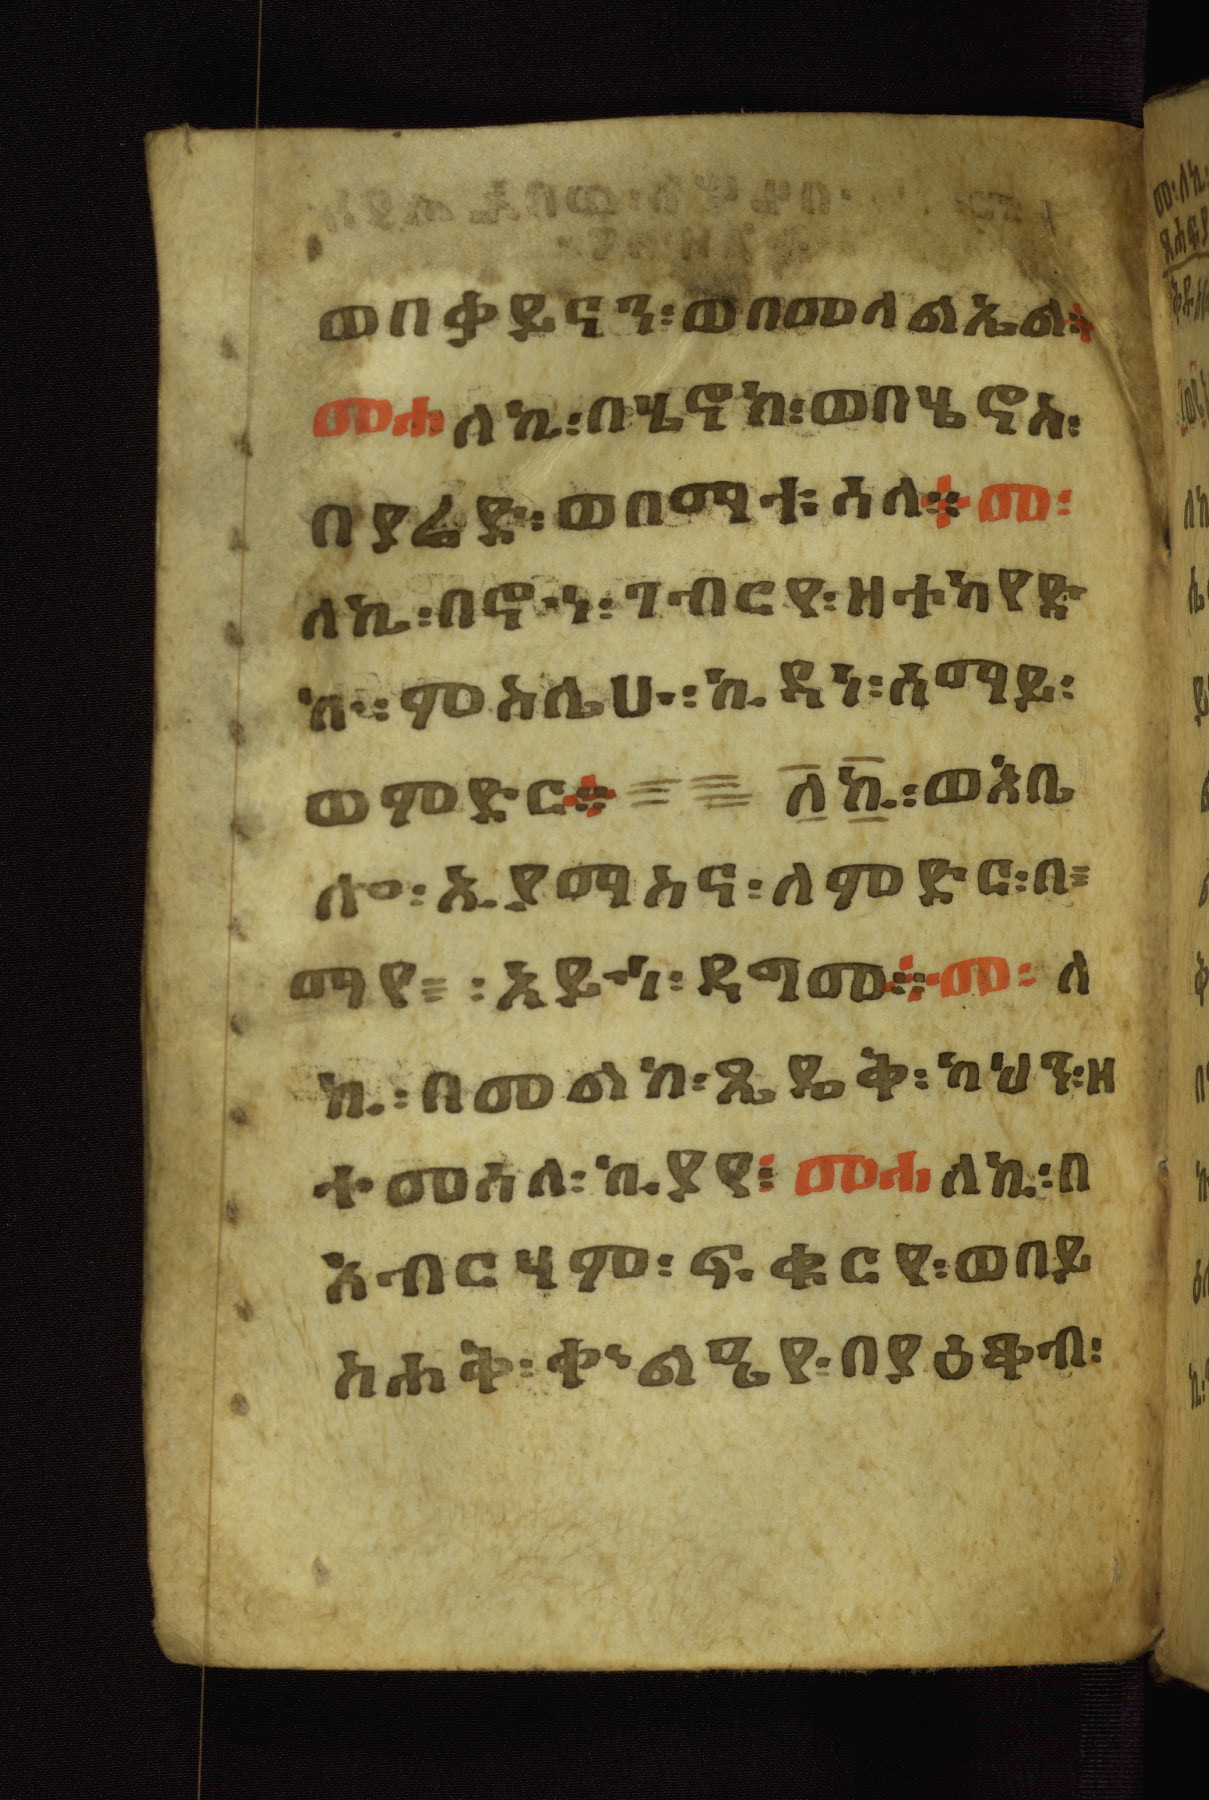 ወበቃይናን፡ወበመላልኤል፨
መሐለኪ፡በሄኖክ፡ወበሄኖስ፡
በያሬድ፡ወበማቱሳላ፨መ፡
ለኪ፡በኖኅ፡ገብርየ፡ዘተካየድ
ኩ፡ምስሌሁ፡ኪዳነ፡ሰማይ፡
ወምድር፨ ለኪ፡ወእቤ
ሎ፡ኢያማስና፡ለምድር፡በ
ማየ፡አይኅ፡ዳግመ፨መ፡ለ
ኪ፡በመልከ፡ጼዴቅ፡ካህን፡ዘ
ተመሰለ፡ኪያየ፤መሐለኪ፡በ
አብርሃም፡ፍቁርየ፡ወበይ
ስሐቅ፡ቍልዔየ፡በያዕቆብ፡